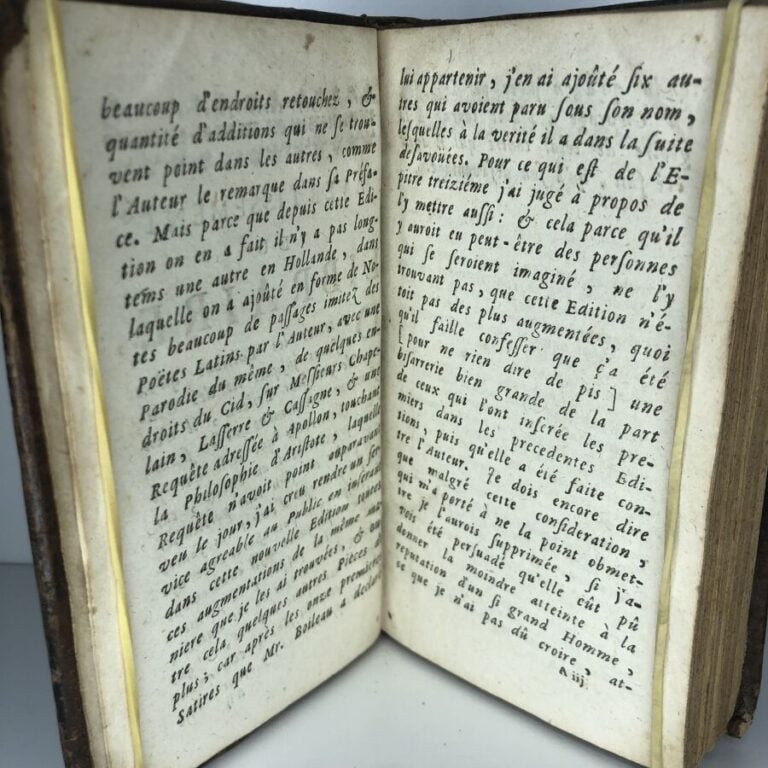 beaucoup d'endroits retouchez, &
quantité d'additions qui ne se trou-
vent point dans les autres, comme
l'Auteur le remarque dans sa Préfa-
ce. Mais parce que depuis cette Edi-
tion on en a fait il n'y a pas long-
tems une autre en Hollande, dans
laquelle on a ajoûté en forme de No-
tes beaucoup de passages imitez des
Poëtes Latins par l'Auteur, avec une
Parodie du même, de quelques en-
droits du Cid, sur Messieurs Chape-
lain, Lasserre & Cassigne, & une
Requête adressée à Apollon, touchant
la Philosophie d'Aristote, laquelle
Requête n'avoit point auparavant
veu le jour, j'ai creu rendre un ser
vice agreable au Public en inserant
dans cette nouvelle Edition toutes
ces augmentations de la même ma
niere que je les ai trouvées, & ou
tre cela quelques autres Pièces
plus; car après les onze premieres
Satires que Mr. Boileau a declaré
lui appartenir, j'en ai ajoûté six au-
tres qui avoient paru sous son nom,
lesquelles à la verité il a dans la suite
desavouées. Pour ce qui est de l'E-
pitre treiziéme j'ai jugé à propos de
l'y mettre aussi: & cela parce qu'il
y auroit eu peut-être des personnes
qui se seroient imaginé, ne l'y
trouvant pas, que cette Edition n'é-
toit pas des plus augmentées, quoi
qu'il faille confesser que ç'a été
[pour ne rien dire de pis] une
bisarrerie bien grande de la part
de ceux qui l'ont inserée les pre-
miers dans les precedentes Edi-
tions, puis qu'elle a été faite con-
tre l'Auteur. Je dois encore dire
que malgré cette consideration,
qui m'a porté à ne la point obmet-
tre je l'aurois supprimée, si j'a-
vois été persuadé qu'elle eût pû
donner la moindre atteinte à la
reputation d'un si grand Homme,
ce que je n'ai pas dû croire, at-
A iij